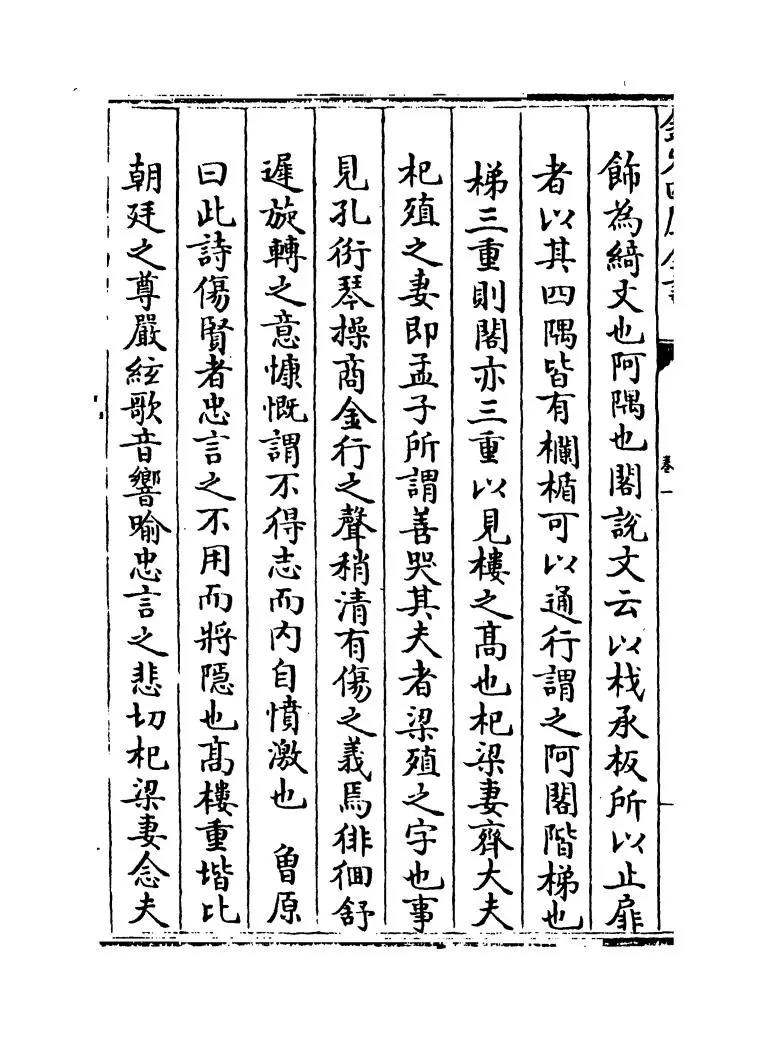 飾為綺文也阿隅也閣說文云以栈承板所以止扉
者以其四隅皆有欄楯可以通行謂之阿閣階梯也
梯三重則閣亦三重以見樓之髙也杞梁妻齊大夫
杞殖之妻即孟子所謂善哭其夫者梁殖之字也事
見孔衍琴操商金行之聲稍清有傷之義焉徘徊舒
遲旋轉之意慷慨謂不得志而内自憤激也　曾原
曰此詩傷賢者忠言之不用而將隠也髙樓重堦比
朝廷之尊嚴絃歌音響喻忠言之悲切杞梁妻念夫
卷一